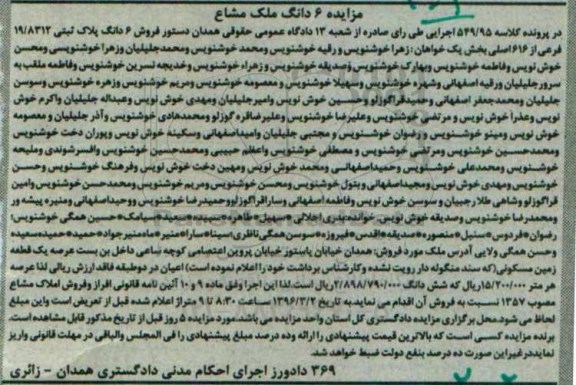 مزایده ۶ دانگ ملک مشاع
در پرونده کلاسه ۵۴۹/۹۵ اجرایی طی رای صادره از شعبه ۱۲ دادگاه عمومی حقوقی همدان دستور فروش ۶ دانگ پلاک ثبتی ۱۹/۸۳۱۲
فرعی از ۶۱۶ اصلی بخش یک خواهان : زهرا خوشنویس و رقیه خوشنویس ومحمد خوشنویس ومحمد جلیلیان وزهرا خوشنویس ومحسن
خوش نویس وفاطمه خوشنویس وبهارک خوشنویس وصدیقه خوشنویس و زهراء خوشنویس وخدیجه نسرین خوشنویس وفاطمه ملقب به
سرور جلیلیان ورقیه اصفهانی وشهره خوشنویس وسهیلا خوشنویس و معصومه خوشنویس ومریم خوشنویس و زهره خوشنویس وسوسن
جلیلیان ومحمدجعفر اصفهانی وحمید قراگوزلو وحسین خوش نویس وامیر جلیلیان ومهدی خوش نویس وعبداله جلیلیان واکرم خوش
نویس وعذرا خوش نویس و مرتضی خوشنویس وعلیرضا خوشنویس وعلیرضا قره گوزلو ومحمدهادی خوشنویس وآذر جلیلیان و معصومه
خوش نویس ومینو خوشنویس و رضوان خوشنویس و مجتبی جلیلیان وامید اصفهانی وسکینه خوش نویس وپوران دخت خوشنویس
ومحمدحسین خوشنویس ومرتضی خوشنویس و مصطفی خوشنویس واعظم حبیبی ومحمدحسین خوشنویس وافسر شوندی وملیحه
خوشنویس ومحمدعلی خوشنویس وحمید اصفهانی ومحمد خوش نویس ومهین دخت خوش نویس وفرهنگ خوشنویس وحسن
خوشنویس ومهدی خوش نویس ومجید اصفهانی وبتول خوشنویس ومحسن خوشنویس ومریم خوشنویس ومحمدحسن خوشنویس وامین
قراگوزلو وشاهی طلارجبیان و سوسن خوش نویس وفاطمه اصفهانی وسارا قراگوزلو وحمیدرضا خوشنویس ووحید اصفهانی ومنیره پیشه ور
ومحمدرضا خوشنویس وصدیقه خوش نویس. خوانده بدری اجلالی *سهیل* طاهره*سپیده*سعید*سیامک*حسین همگی خوشنویس؛
رضوان*فردوس*سنبل*منصوره*صدیقه*اقدس*فیروزه*سوسن همگی ناظری؛سینا*سارا*منیر*ماه منیر جواد*حمید*حمید*سعیده
وحسن همگی ولایی آدرس ملک مورد فروش: همدان خیابان پاستور خیابان پروین اعتصامی کوچه ساعی داخل بن بست عرصه یک قطعه
زمین مسکونی(که سند منگوله دار رویت نشده وکارشناس برداشت خود را اعلام نموده است) اعیان در دوطبقه فاقد ارزش ریالی لذا عرصه
هر متر ۱۵/۲۰۰/۰۰۰ریال که شش دانگ ۲/۸۹۸/۷۹۰/۰۰۰ریال است.لذا این اجرا وفق ماده ۹ و ۱۰ آئین نامه قانونی افراز وفروش املاک مشاع
مصوب ۱۳۵۷ نسبت به فروش آن اقدام می نماید.به تاریخ ۱۳۹۶/۳/۲ ساعت ۸:۳۰ تا ۹ متراژ اعلام شده قبل از تعریض است واین مبلغ
لحاظ می شود.محل برگزاری مزایده دادگستری کل استان واحد مزایده می باشد.مورد مزایده ۵ روز قبل از تاریخ مذکور قابل مشاهده است.
برنده مزایده کسی است که بالاترین قیمت پیشنهادی را ارائه وده درصد مبلغ پیشنهادی را فی المجلس والباقی در مهلت قانونی واریز
نماید.در غیر این صورت ده درصد بنفع دولت ضبط خواهد شد.
۳۶۹ دادورز اجرای احکام مدنی دادگستری همدان - زائری